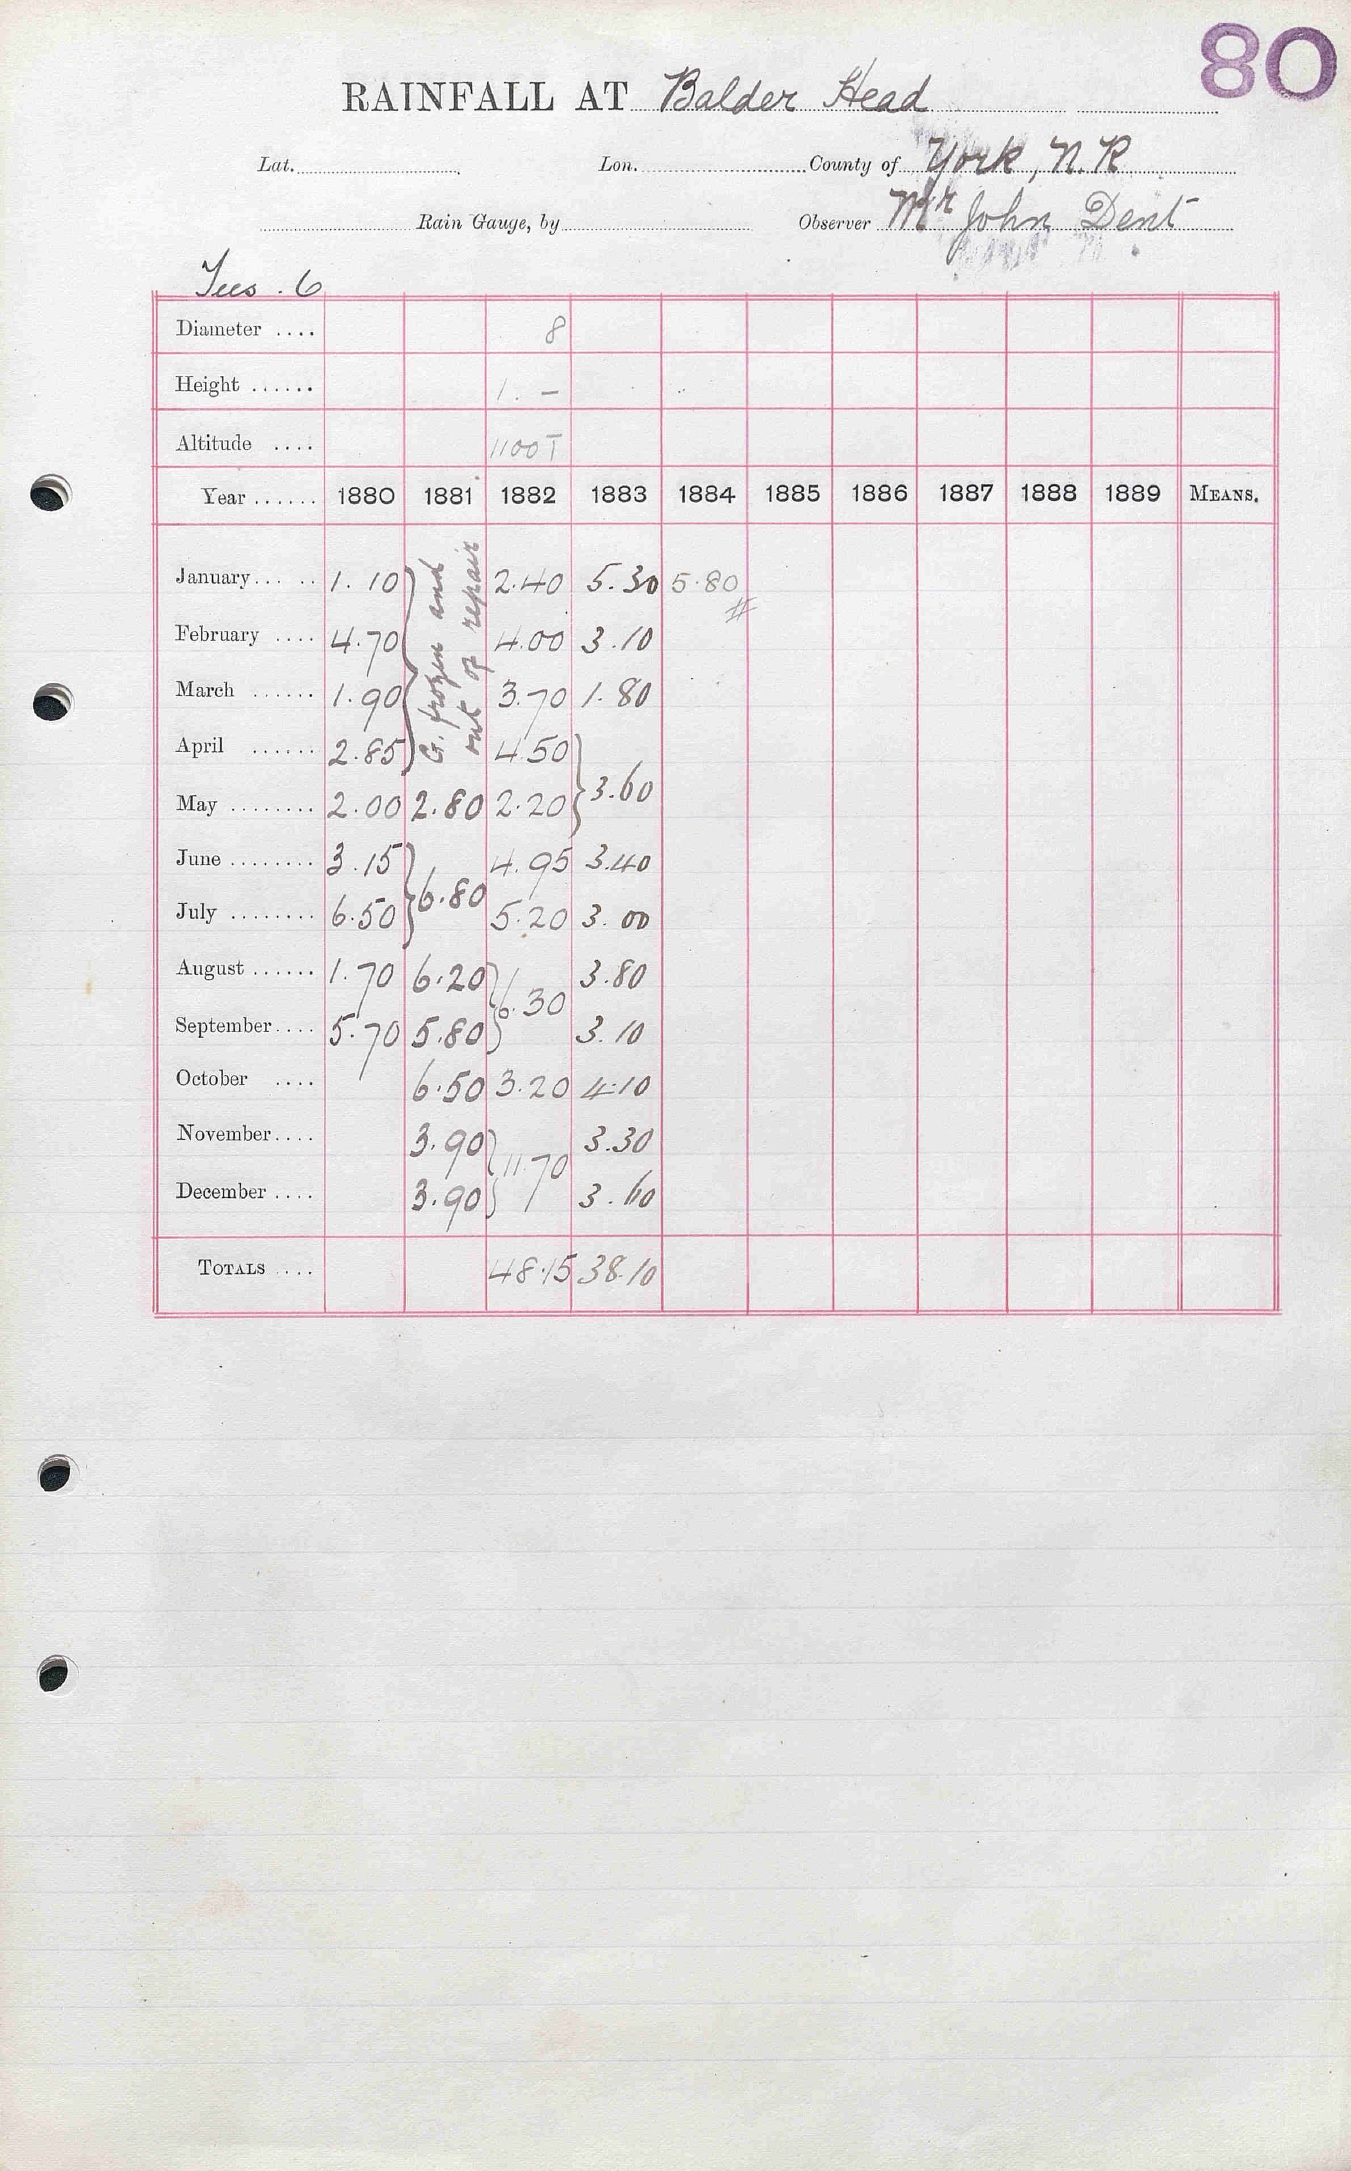 80
RAINFALL AT Balder Head
Lat. Lon. County of York, N.R
Rain Gauge, by Observer Mr John Dent
Tees. 6
Diameter .... 8
Height ...... 1. —
Altitude .... 1100 T
Year ...... 1880 1881 1882 1883 1884 1885 1886 1887 1888 1889 MEANS.
G. frozen and
out of repair
January... .. 1.10 2.40 5.30 5.80
#
February .... 4.70 4.00 3.10
March ...... 1.90 3.70 1.80
April ...... 2.85 4.50
3.60
May ........ 2.00 2.80 2.20
June ........ 3.15 4.95 3.40
6.80
July ........ 6.50 5.20 3.00
August ...... 1.70 6.20 3.80
6.30
September.... 5.70 5.80 3.10
October .... 6.50 3.20 4.10
November.... 3.90 3.30
11.70
December .... 3.90 3.60
TOTALS .... 48.15 38.10